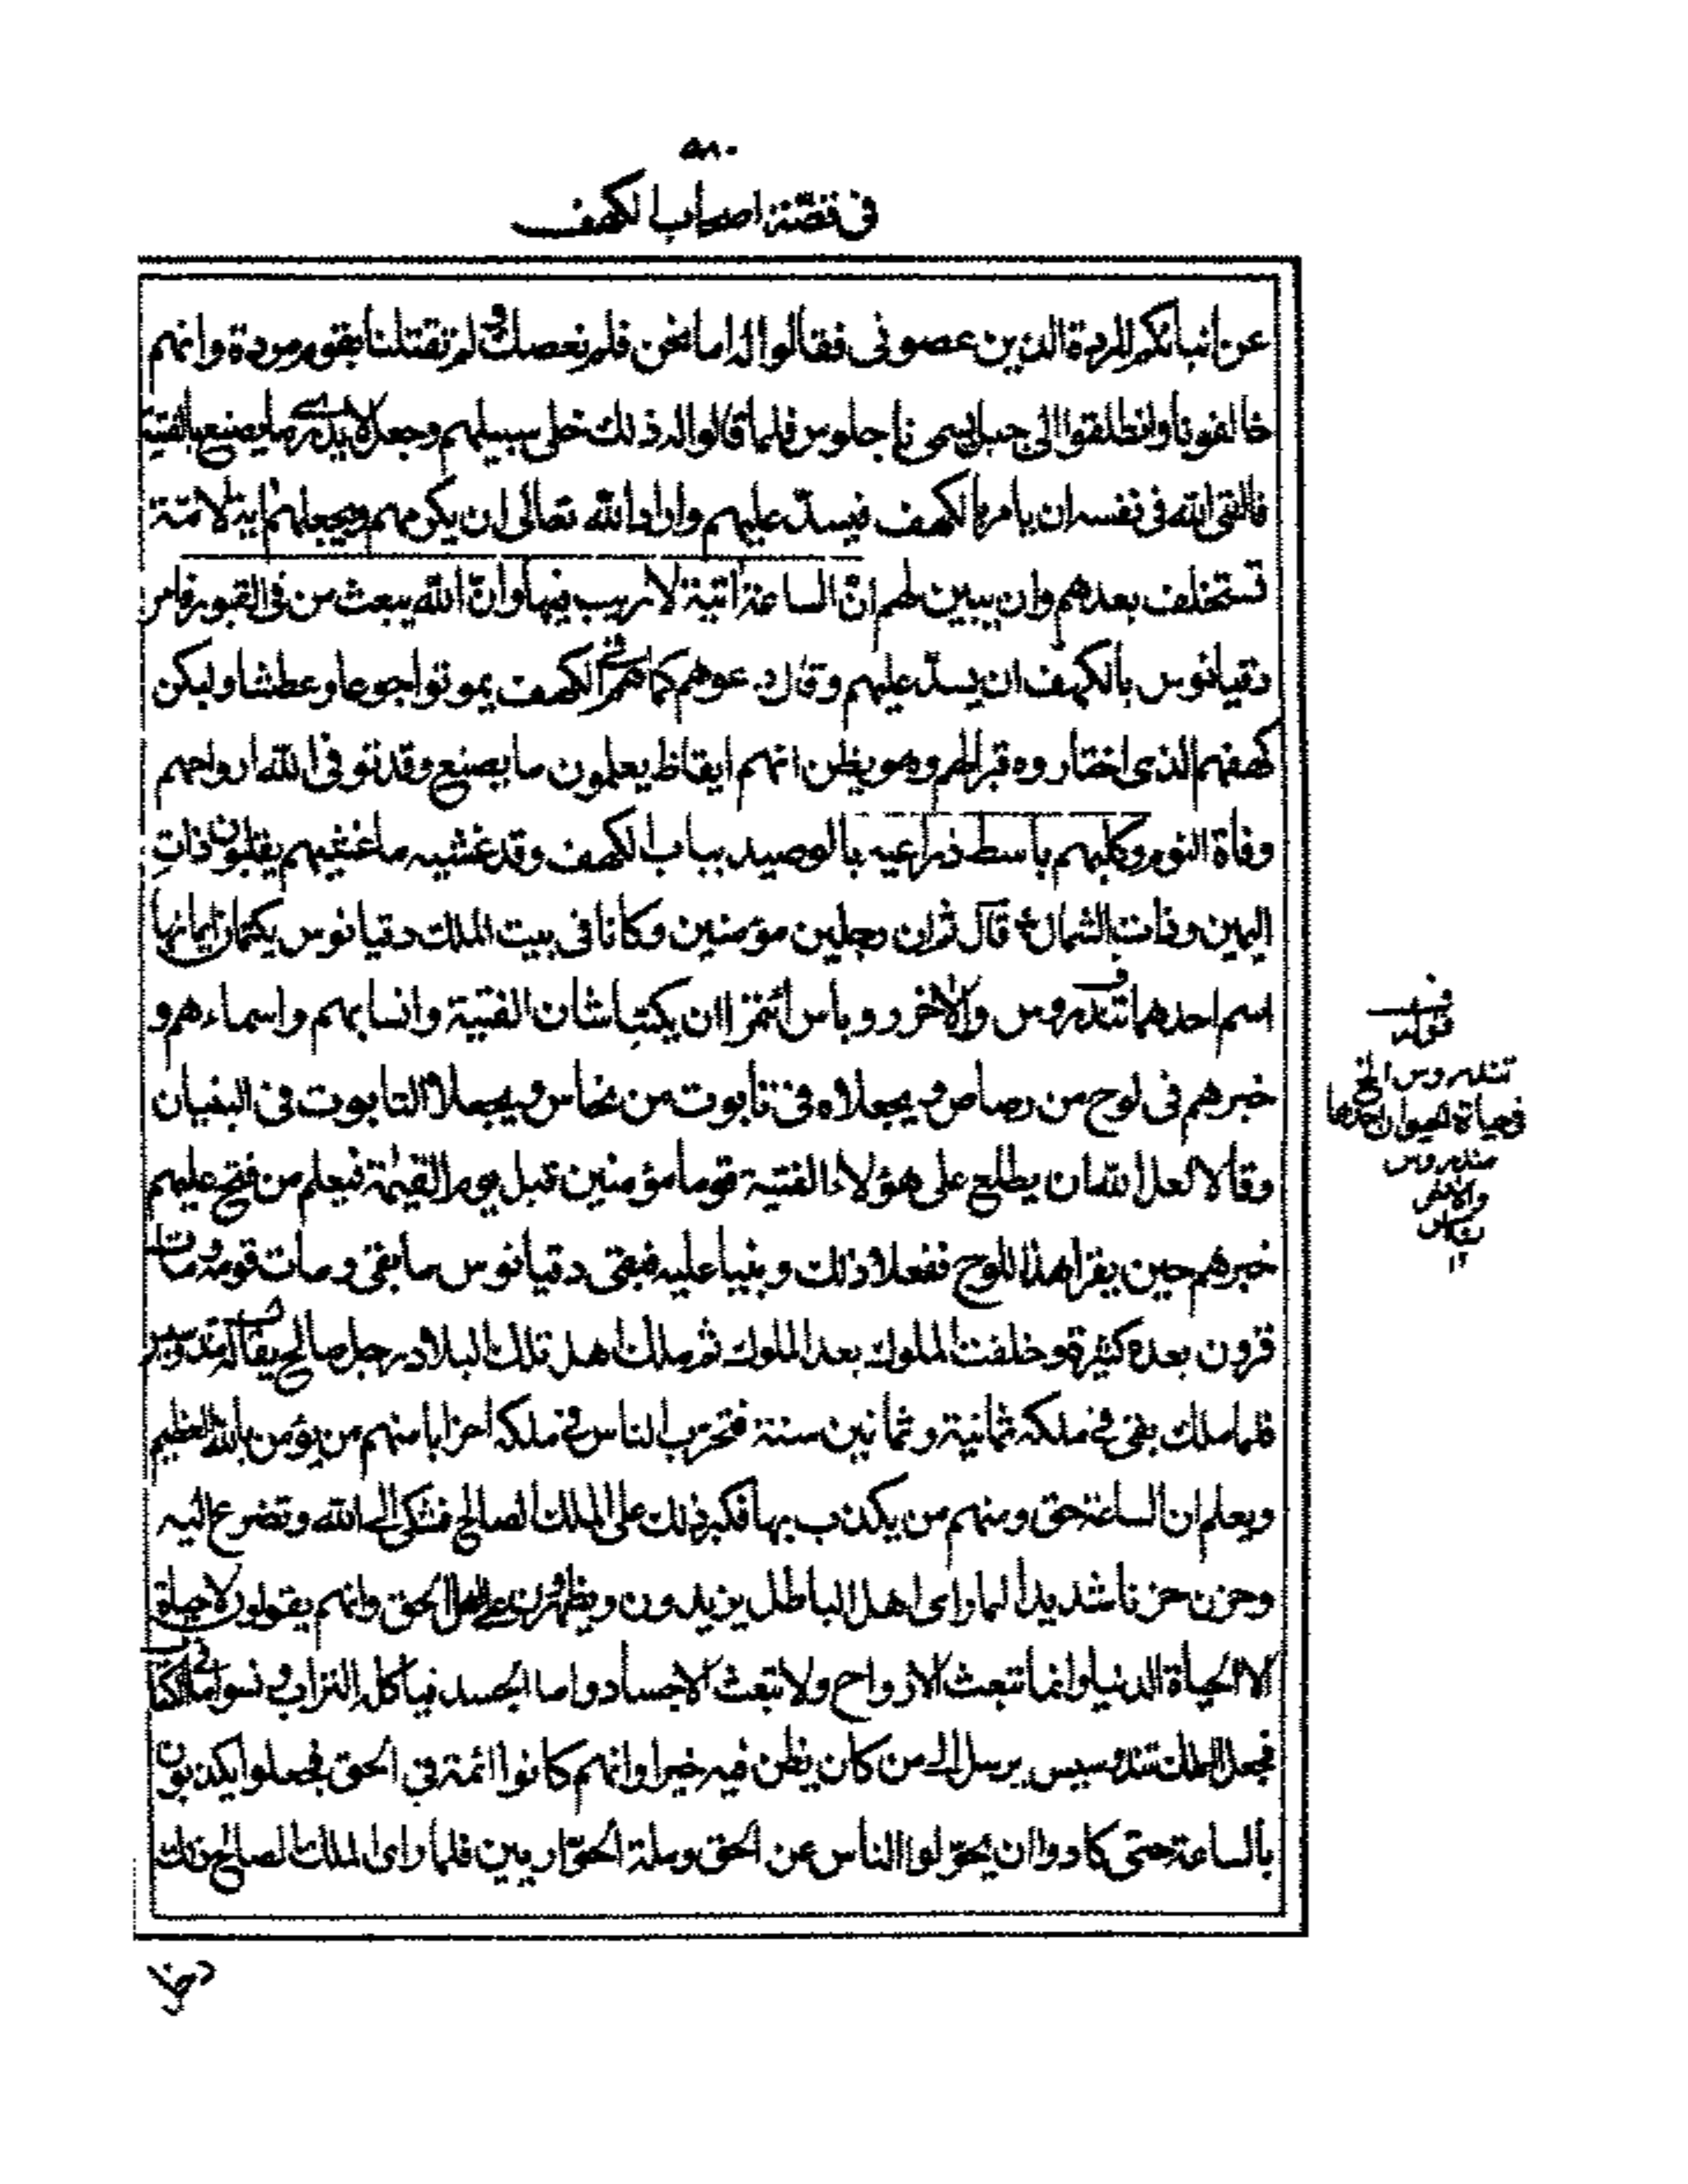 ٥٨٠
فى قصّة اصحاب الكهف
عن انبائكم المردة الذين عصونى فقالوا له اما نحن فلم نعصك لم تقتلنا بقوم مردة وانهم
خالفونا وانطلقوا الى جبل يسمى ناجلوس فلما قالوا له ذلك خلى سبيلهم وجعل لا يدرى ما يصنع بالفتية
فالقى الله فى نفسه ان يامر بالكهف فيسدّ عليهم واراد الله تعالى ان يكرمهم ويجعلهم اية لامّة
تستخلف بعدهم وان يبين لهم انّ الساعة اتية لا ريب فيها وانّ الله يبعث من فى القبور فامر
دقيانوس بالكهف ان يسدّ عليهم وقال دعوهم كما هم فى الكهف يموتوا جوعا وعطشا وليكن
كهفهم الذى اختاروه قبرا لهم وهو يظن انهم ايقاظ يعلمون ما يصنع وقد توفى الله ارواحهم
وفاة النوم وكلبهم باسط ذراعيه بالوصيد بباب الكهف وقد غشيه ما غشيهم يقلبون ذات
اليمين وذات الشمال قال ثم ان رجلين مؤمنين وكانا فى بيت الملك دقيانوس يكتمان ايمانهما
اسم احدهما تندروس والاخر روباس ائتمرا ان يكتبا شان الفتية وانسابهم واسماءهم و
خبرهم فى لوح من رصاص ويجعلاه فى تابوت من نحاس ويجعلا التابوت فى البنيان
وقالا لعل الله ان يطلع على هؤلاء الفتية قوما مؤمنين قبل يوم القيمة فيعلم من فتح عليهم
خبرهم حين يقرا هذا اللوح ففعلا ذلك وبنيا عليه فبقى دقيانوس ما بقى ومات قومه ومات
قرون بعده كثيرة وخلفت الملوك بعد الملوك ثم ملك اهل تلك البلاد رجل صالح يقال له تندوسيس
فلما ملك بقى فى ملكه ثمانية وثمانين سنة فتحزب الناس فى ملكه احزابا منهم من يؤمن بالله العظيم
ويعلم ان الساعة حق ومنهم من يكذب بها فكبر ذلك على الملك الصالح فشكى الى الله وتضرع اليه
وحزن حزنا شديدا لما راى اهل الباطل يزيدون ويظهرون على اهل الحق وانهم يقولون لا حياة
الا الحياة الدنيا وانما تبعث الارواح ولا تبعث الاجساد واما الجسد فياكله التراب ونسوا ما فى الكتاب
فجعل الملك تندوسيس يرسل الى من كان يظن فيه خيرا وانهم كانوا ائمة فى الحق فجعلوا يكذبون
بالساعة حتى كادوا ان يحوّلوا الناس عن الحق وملة الحوّاريين فلما راى الملك الصالح ذلك
قوله
تندروس الخ
فى حياة الحيوان احدهما
مندروس
والاخر
١٢
دخل